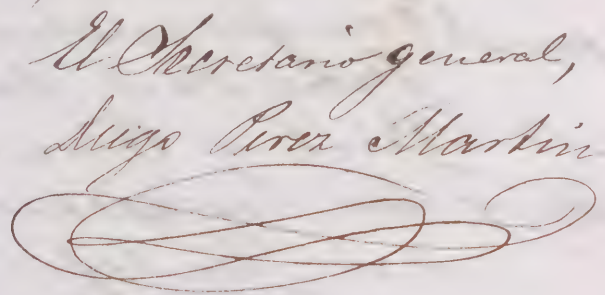 El Secretario general,
Diego Perez Martin